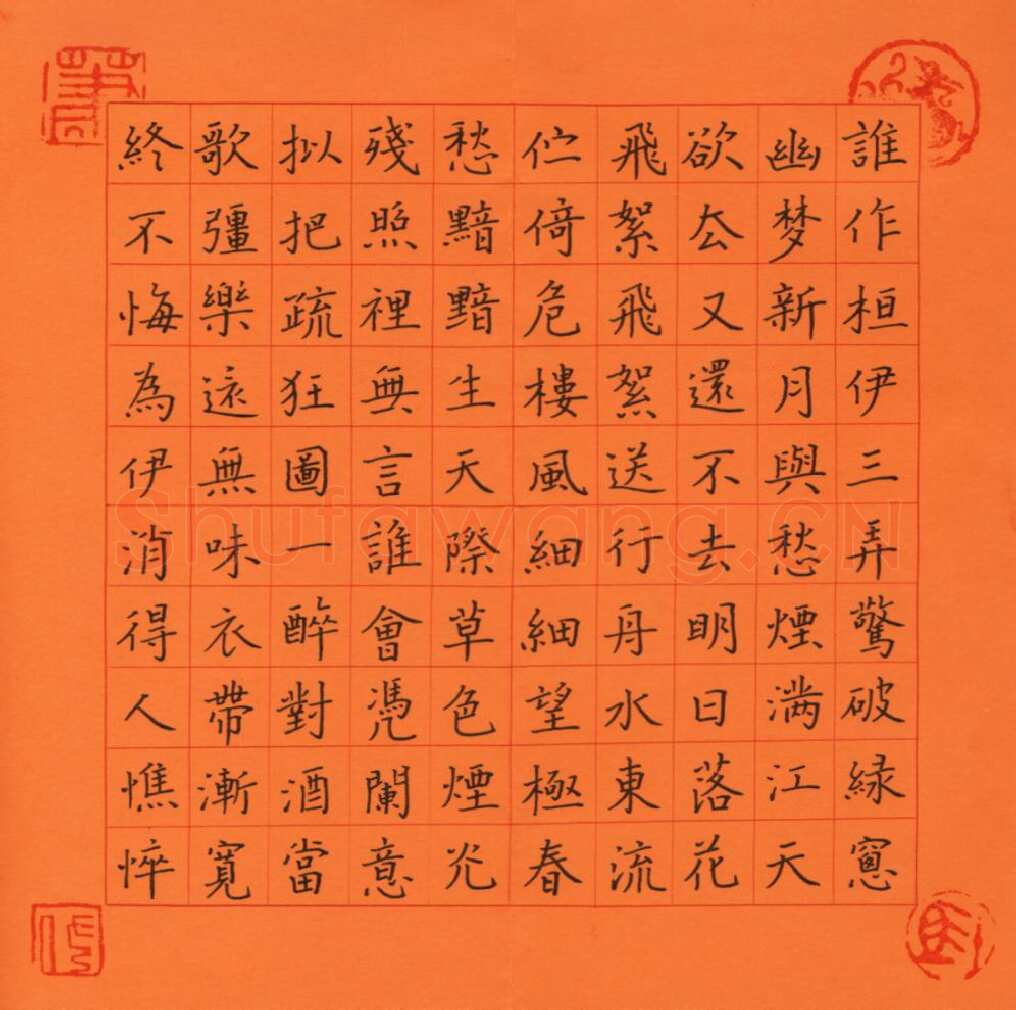 誰作桓伊三弄驚破緑窻
幽梦新月與愁煙满江天
欲去又還不去明日落花
飛絮飛絮送行舟水東流
伫倚危樓風細細望極春
愁黯黯生天際草色煙光
殘照裡無言誰會憑闌意
拟把疏狂圖一醉對酒當
歌彊樂還無味衣帶漸寬
終不悔為伊消得人憔悴
Shufawang.CN